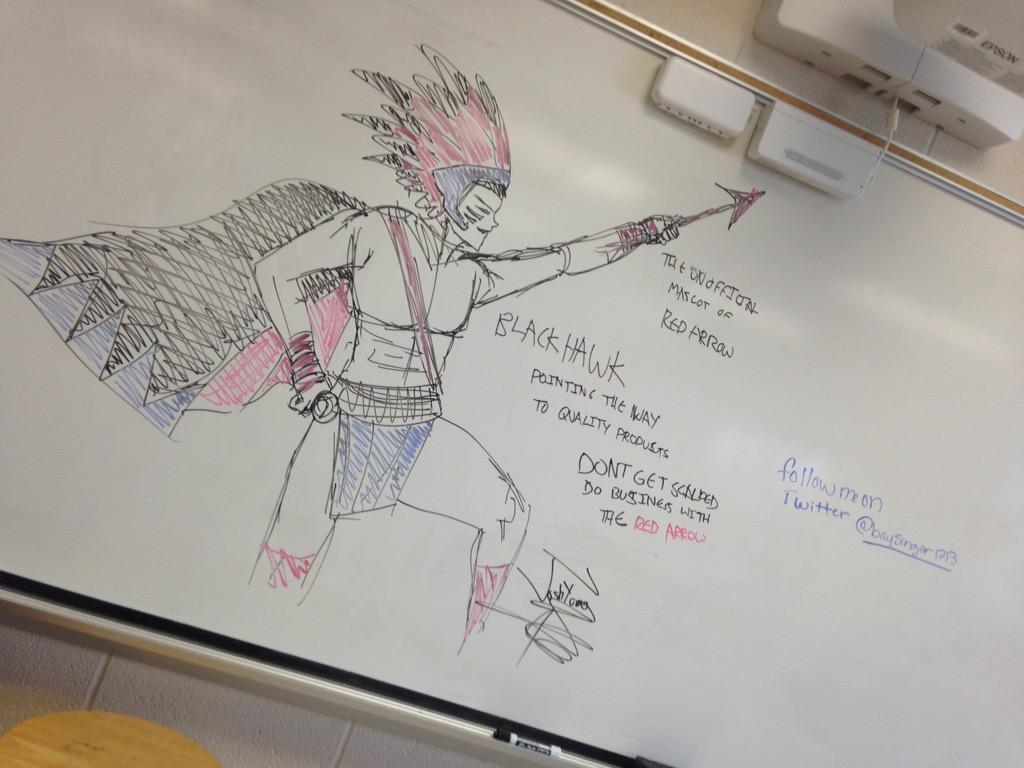 EPSON
THE UNOFFICIAL
MASCOT OF
RED ARROW
BLACKHAWK
POINTING THE WAY
TO QUALITY PRODUCTS
DONT GET SCALPED
DO BUSINESS WITH
THE RED ARROW
follow me on
Twitter @baysinger1213